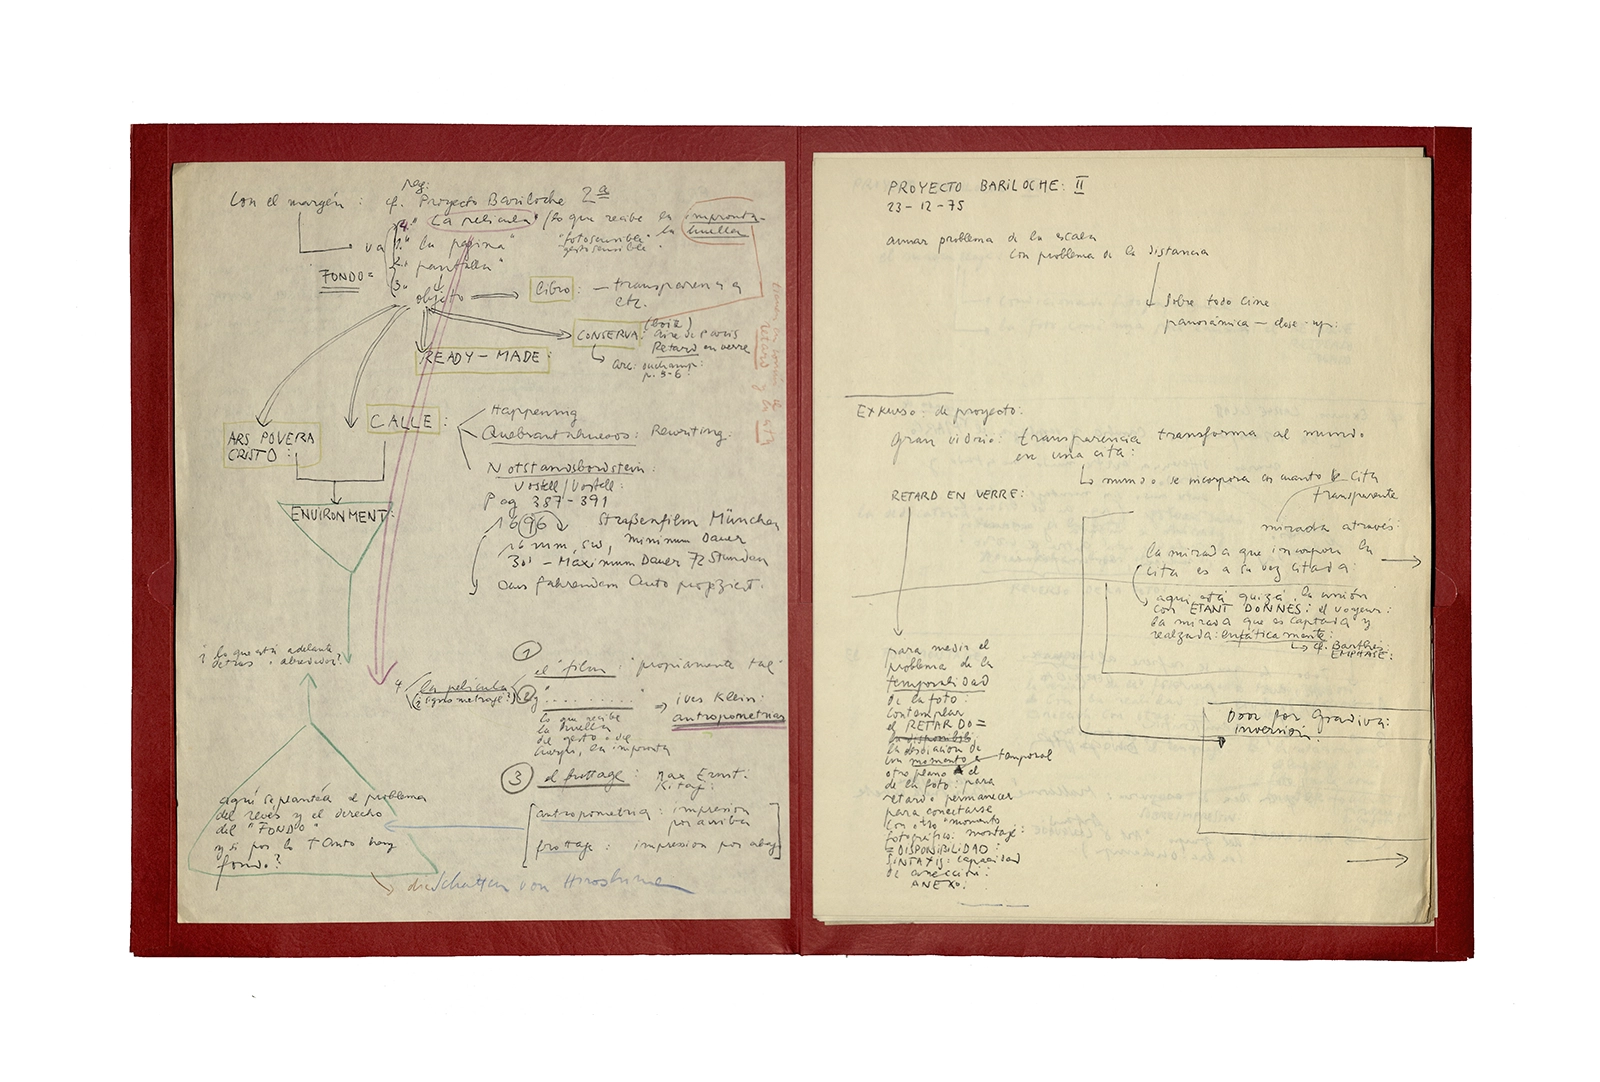 pag:
Con el margén : cf. Proyecto Bariloche 2ª
4. "La película" / lo que recibe la impronta
va 1. "la página" "fotosensible" la huella
"gestosensible"
FONDO = 2. "pantalla"
3. objeto
Libro : — transparencia
etc.
CONSERVA: (boîte)
aire de Paris
Retard en verre
READY-MADE :
cfr. Duchamp:
p. 5-6
ARS POVERA
CRISTO :
CALLE :
Happening
Quebrantahuesos : Rewriting.
Notstandsbordstein :
Vostell / Vostell :
Pag 387-391
ENVIRONMENT :
1696 Straßenfilm München
16 mm, sw, Minimum Dauer
30' – Maximum Dauer 72 Stunden
aus fahrendem Auto projiziert.
¿ lo que está adelante
detrás o alrededor?
1
el "film" : "propiamente tal"
4. la película 2) ".........." ⇒ ives Klein:
antropometrías
lo que recibe
la huella
del gesto, del
cuerpo, la impronta
3 el frottage : Max Ernst:
Kitaj:
aquí se plantea el problema
del revés y el derecho
del "FONDO"
y si por lo tanto hay
fondo?
antropometría : impresión
por arriba
frottage : impresión por abajo
die Schatten von Hiroshima
PROYECTO BARILOCHE: II
23-12-75
aunar problema de la escala
con problema de la distancia
Sobre todo cine
panorámica – close-up:
Exkurso: de proyecto:
Gran vidrio: transparencia transforma al mundo
en una cita:
Lo mundo se incorpora en cuanto cita
transparente
RETARD EN VERRE:
mirada através:
la mirada que incorpora la
cita es a su vez citada:
aquí está quizá la unión
con ETANT DONNES: el voyeur:
la mirada que es captada y
realzada: enfáticamente:
cf. Barthes:
EMPHASE:
para medir el
problema de la
temporalidad
de la foto:
contemplar
el RETARDO =
la disponibili
la desviación de
un momento temporal
otro plano el
de la foto: para
retardo permanecer
para conectarse
con otro "momento
fotográfico: montaje:
= DISPONIBILIDAD:
SINTAXIS: capacidad
de conección:
ANEXO.
Door for Gradiva:
inversión: